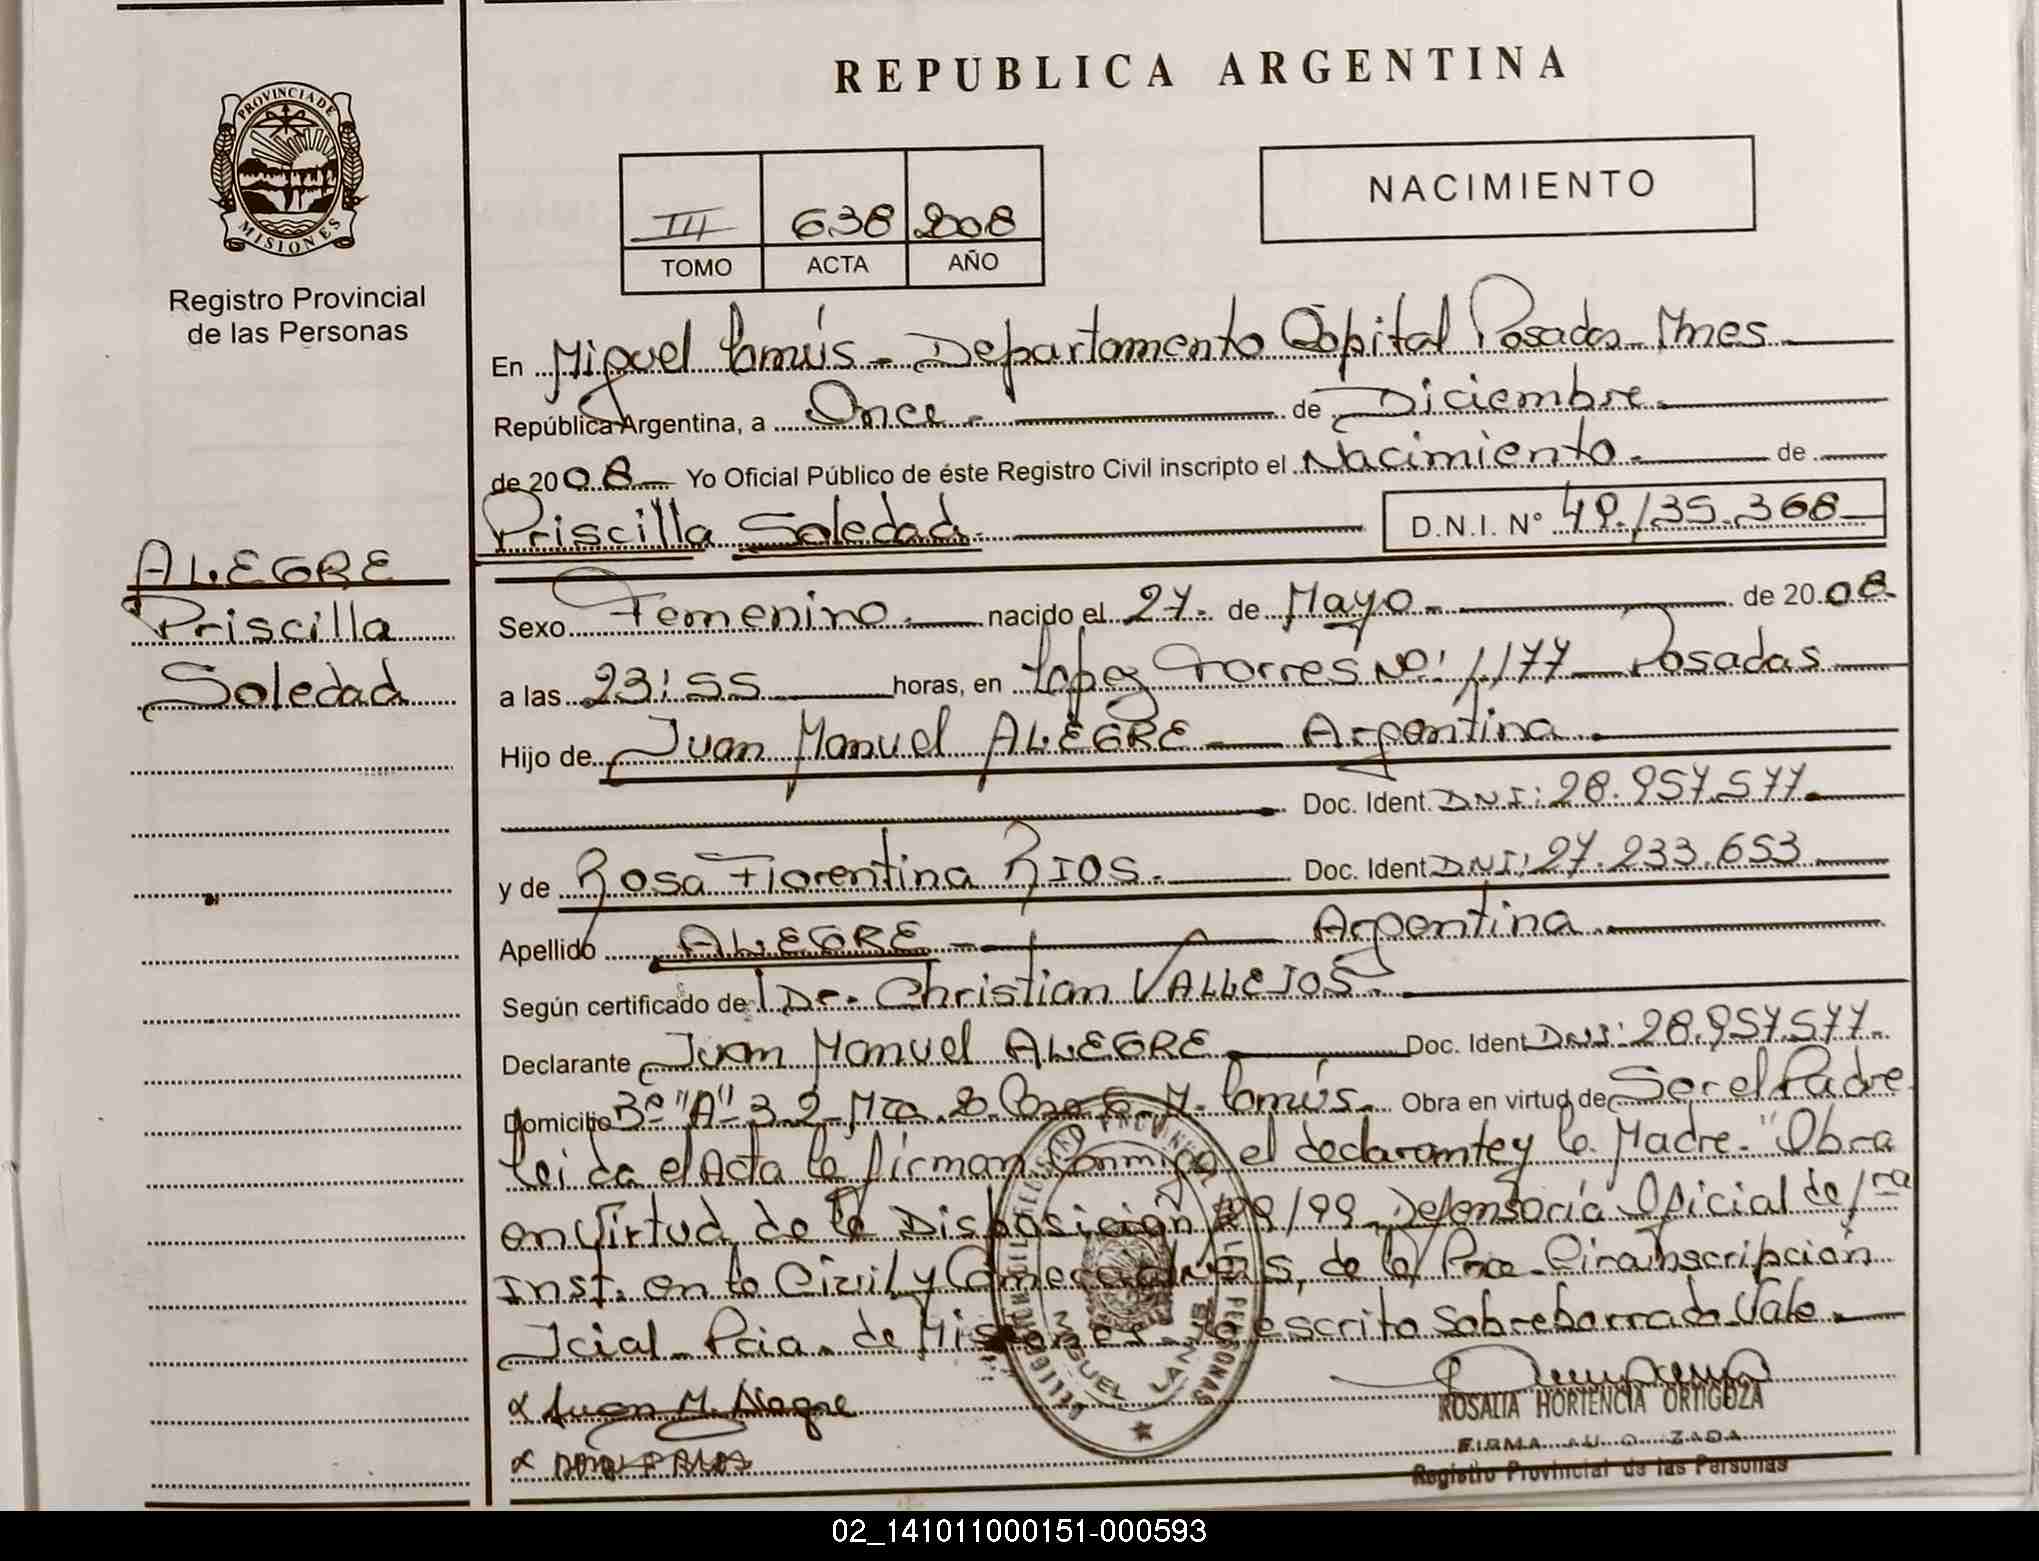 REPUBLICA ARGENTINA
PROVINCIA DE
MISIONES
Registro Provincial
de las Personas
III 638 2008
TOMO ACTA AÑO
NACIMIENTO
En Miguel Lanús - Departamento Capital Posadas - Mnes
República Argentina, a Once - de Diciembre -
de 2008 - Yo Oficial Público de éste Registro Civil inscripto el Nacimiento - de
Priscilla Soledad - D.N.I. N° 49.135.368
ALEGRE
Priscilla
Soledad
Sexo Femenino - nacido el 27 - de Mayo - de 2008
a las 23:55 horas, en López Torres Nº: 1177 - Posadas
Hijo de Juan Manuel ALEGRE - Argentina -
Doc. Ident. DNI: 28.957.577 -
y de Rosa Florentina RIOS - Doc. Ident DNI: 27.233.653
Apellido ALEGRE - Argentina -
Según certificado de Dr. Christian VALLEJOS -
Declarante Juan Manuel ALEGRE - Doc. Ident DNI: 28.957.577 -
Domicilio 3º "A" 32 - Mza. 8 Casa 6 - M. Lanús - Obra en virtud de Ser el Padre
Leida el Acta la firman Conmigo el declarante y la Madre - "Obra
en Virtud de la Disposición /99 - Defensoría Oficial de 1ra
Inst. en lo Civil y Comercial de la Pra - Circunscripción
Jcial - Pcia - de Misiones - Lo escrito Sobreborrado Vale -
x Juan M. Alegre
ROSALIA HORTENCIA ORTIGOZA
FIRMA AUTORIZADA
Registro Provincial de las Personas
MIGUEL LANUS
02_141011000151-000593